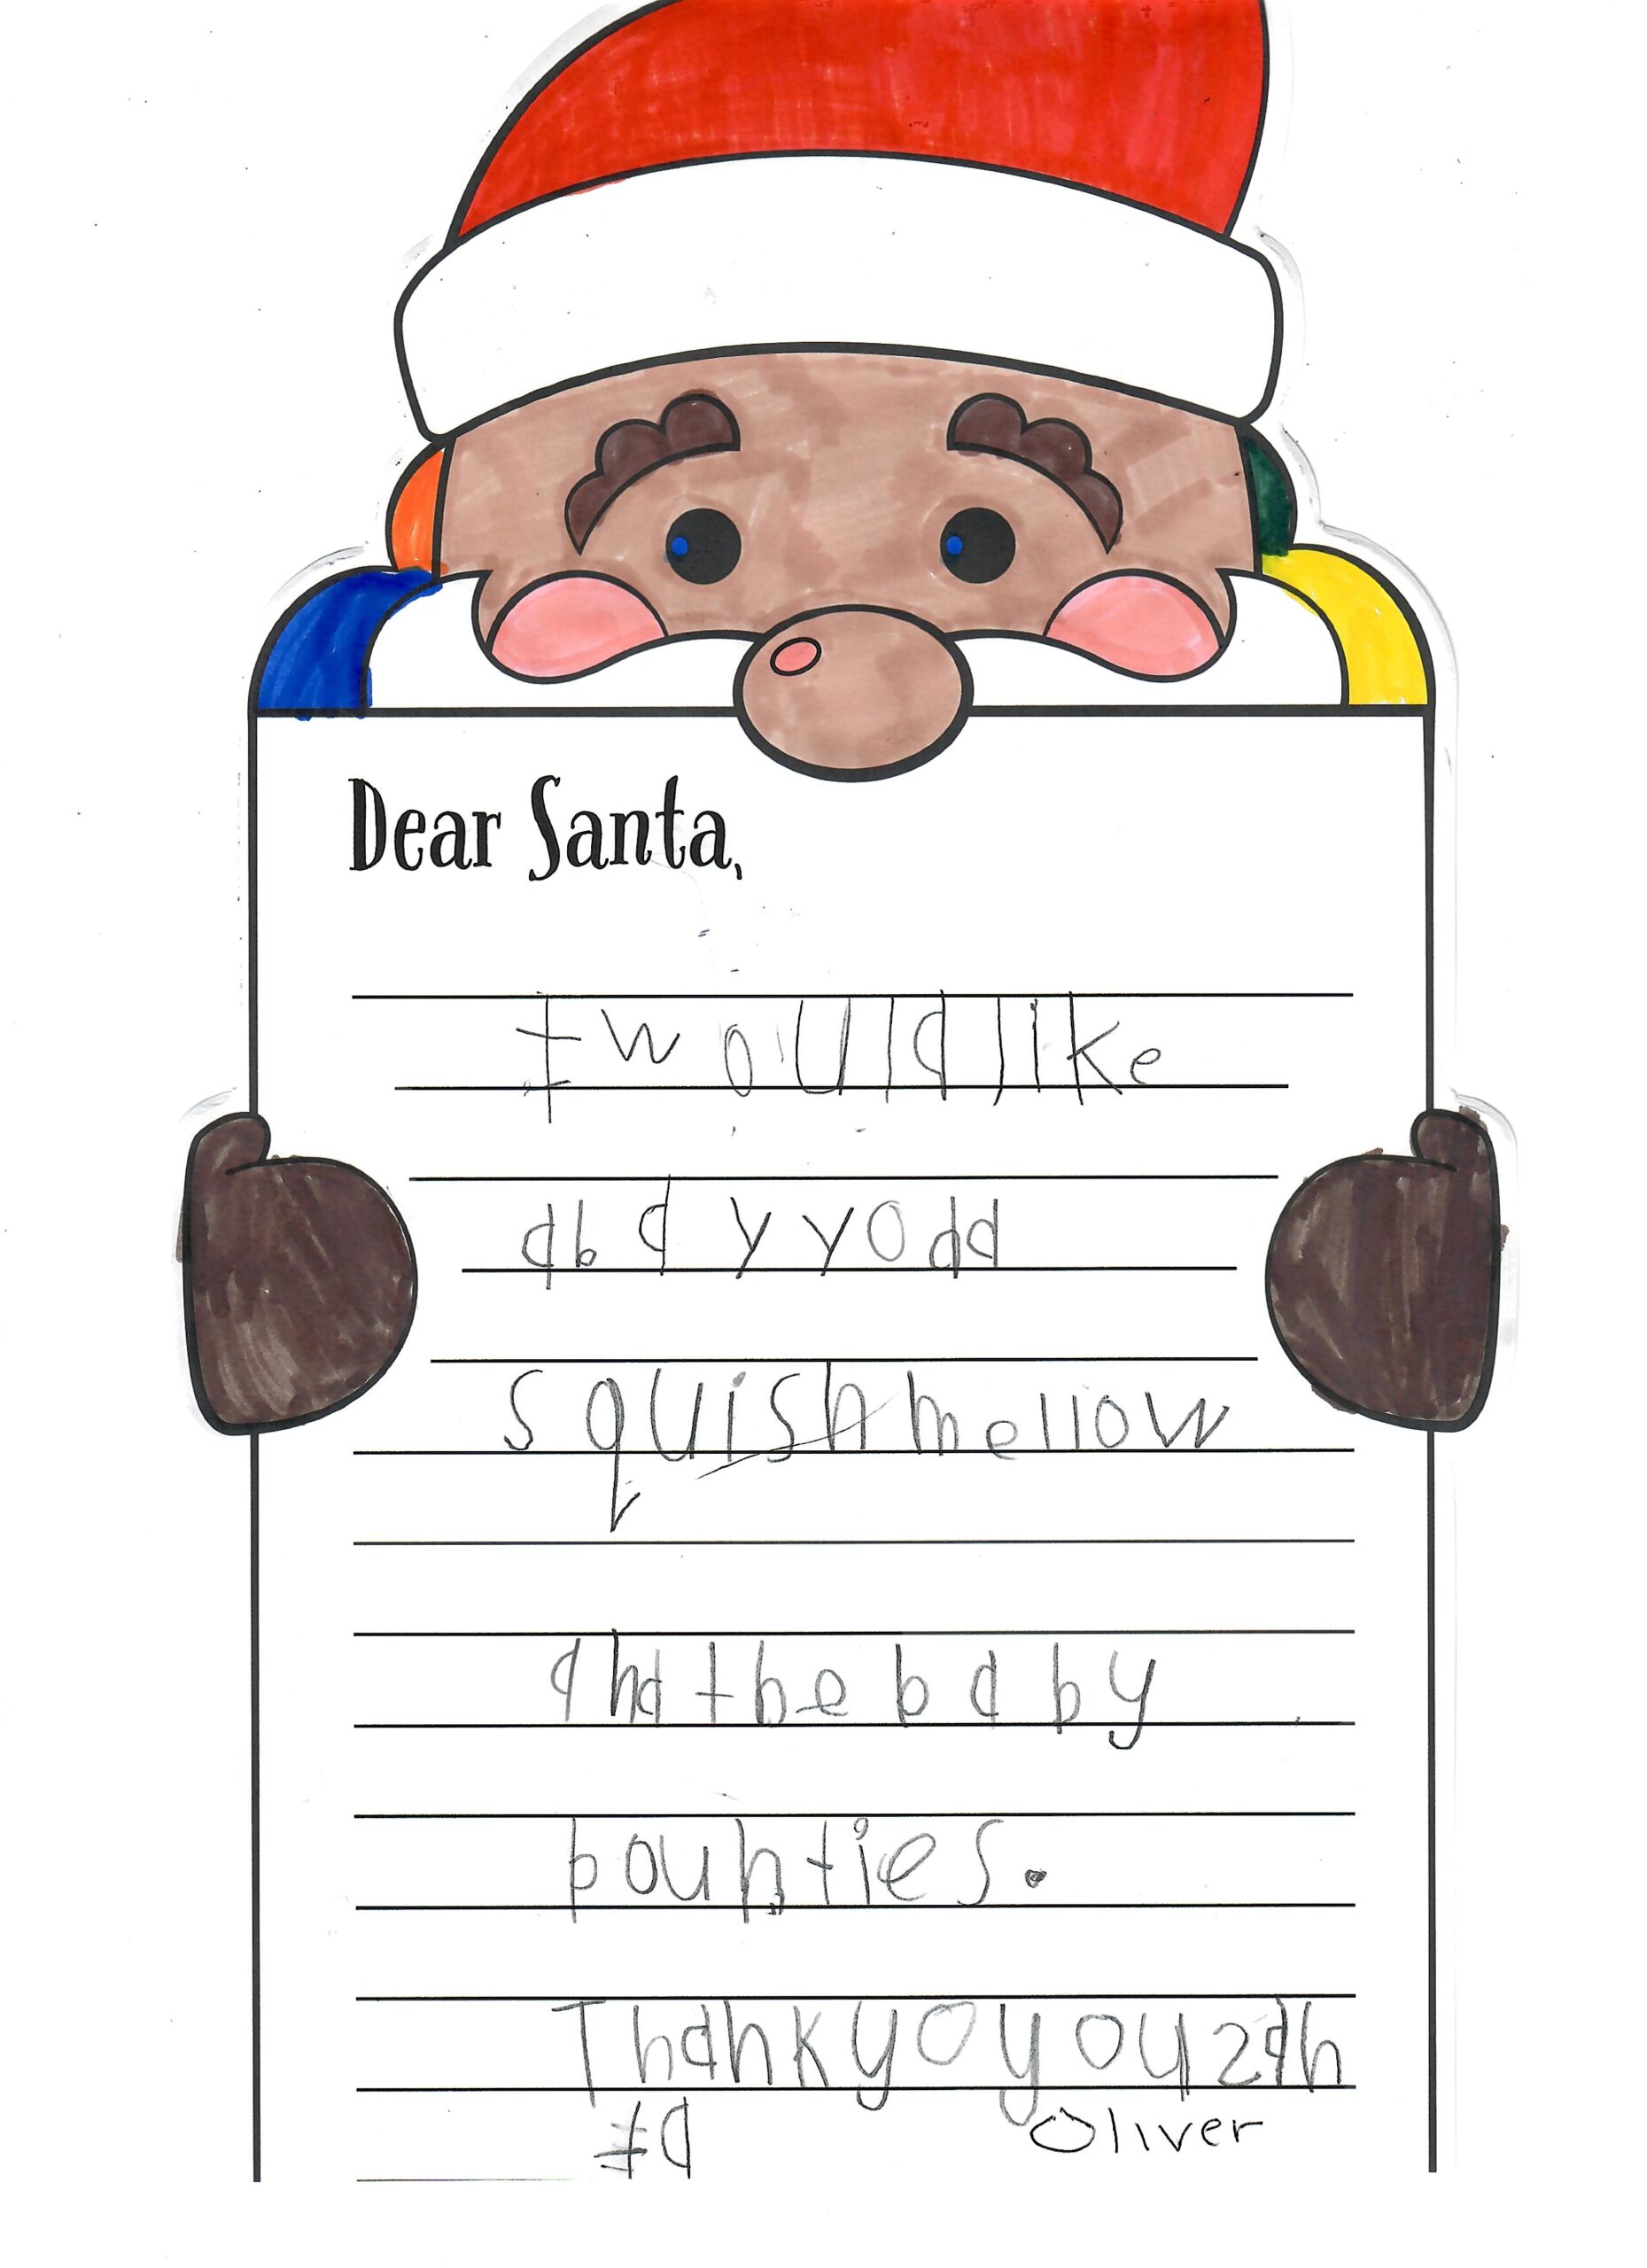 Dear Santa,
I would like
a bay yoda
squishmellow
and the baby
bounties.
Thank yo you san
ta Oliver